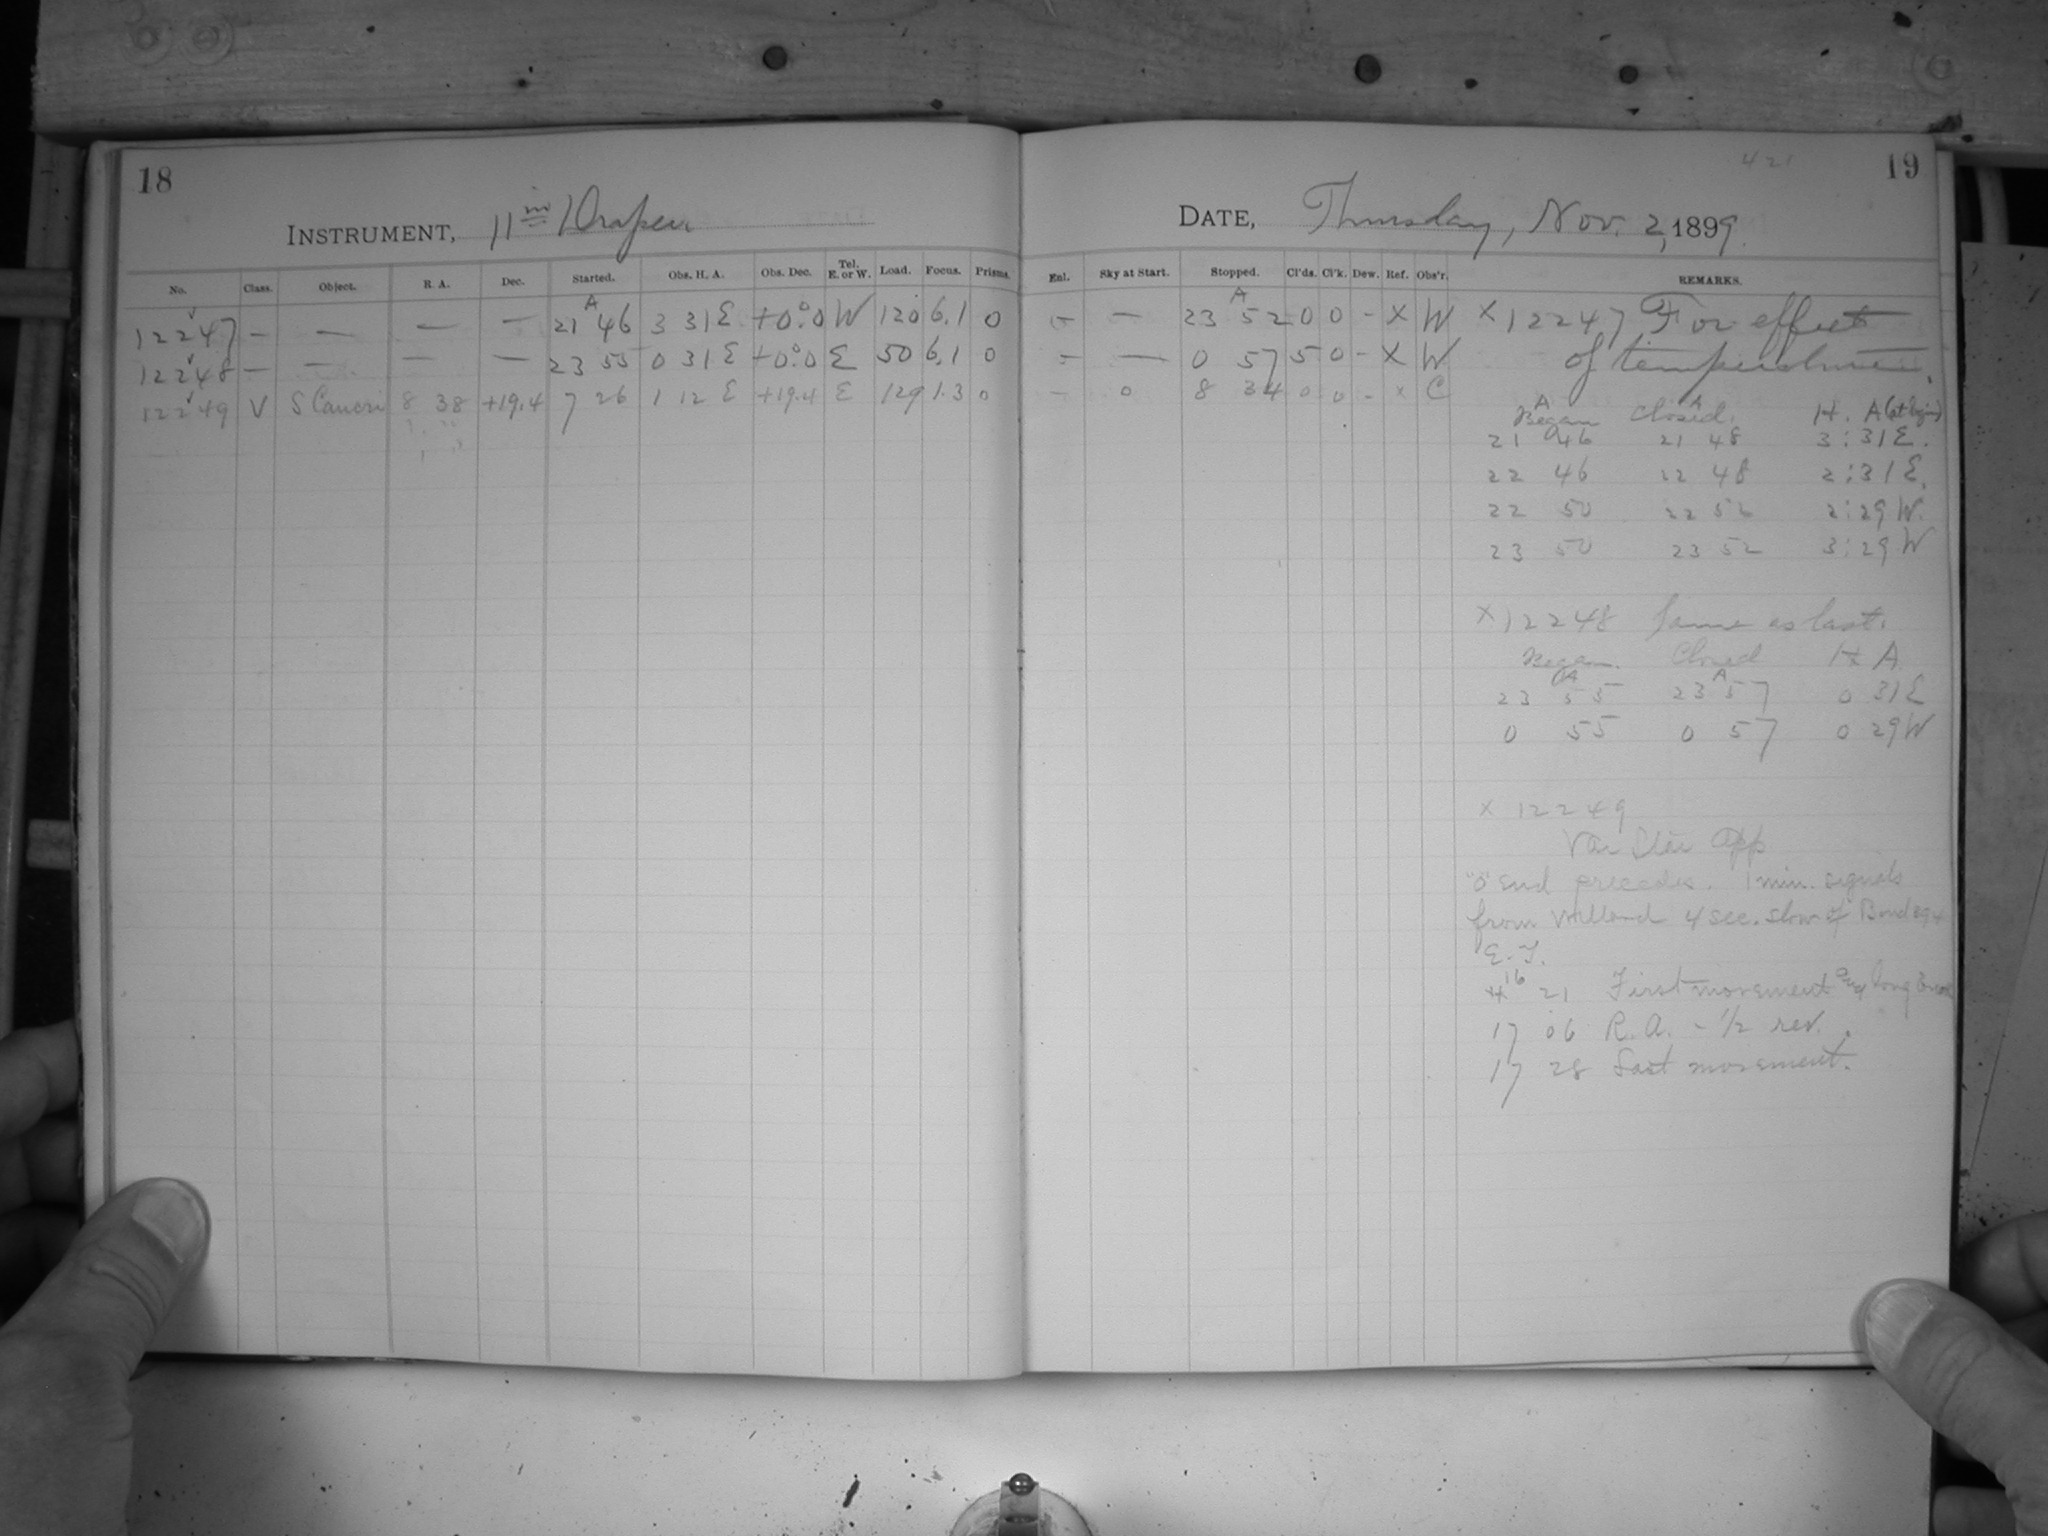 18
INSTRUMENT, 11in Draper
No. Class. Object. R. A. Dec. Started. Obs. H. A. Obs. Dec. Tel. E. or W. Load. Focus. Prisms.
12247 — — — — 21 A 46 3 31 E +0°.0 W 120 6.1 0
12248 — — — — 23 55 0 31 E +0°.0 E 50 6.1 0
12249 V S Cancri 8 38 +19.4 7 26 1 12 E +19.4 E 129 1.3 0
421
19
DATE, Thursday, Nov. 2, 1899.
Enl. Sky at Start. Stopped. Cl'ds. Cl'k. Dew. Ref. Obs'r. REMARKS.
— — 23 A 52 0 0 - X W
— — 0 57 5 0 - X W
— 0 8 34 0 0 - x C
X 12247 For effect
of temperature.
Began A Closed A H. A (at begin)
21 46 21 48 3:31 E.
22 46 22 48 2:31 E.
22 50 22 52 2:29 W.
23 50 23 52 3:29 W
X 12248 Same as last.
Began Closed H A
23 A 55 23 A 57 0 31 E
0 55 0 57 0 29 W
X 12249
Var Star App
"0" end precedes. 1 min. signals
from Willard 4 sec. slow of Bond
16 21 First movement long
17 06 R.A. - 1/2 rev.
17 28 Last movement.